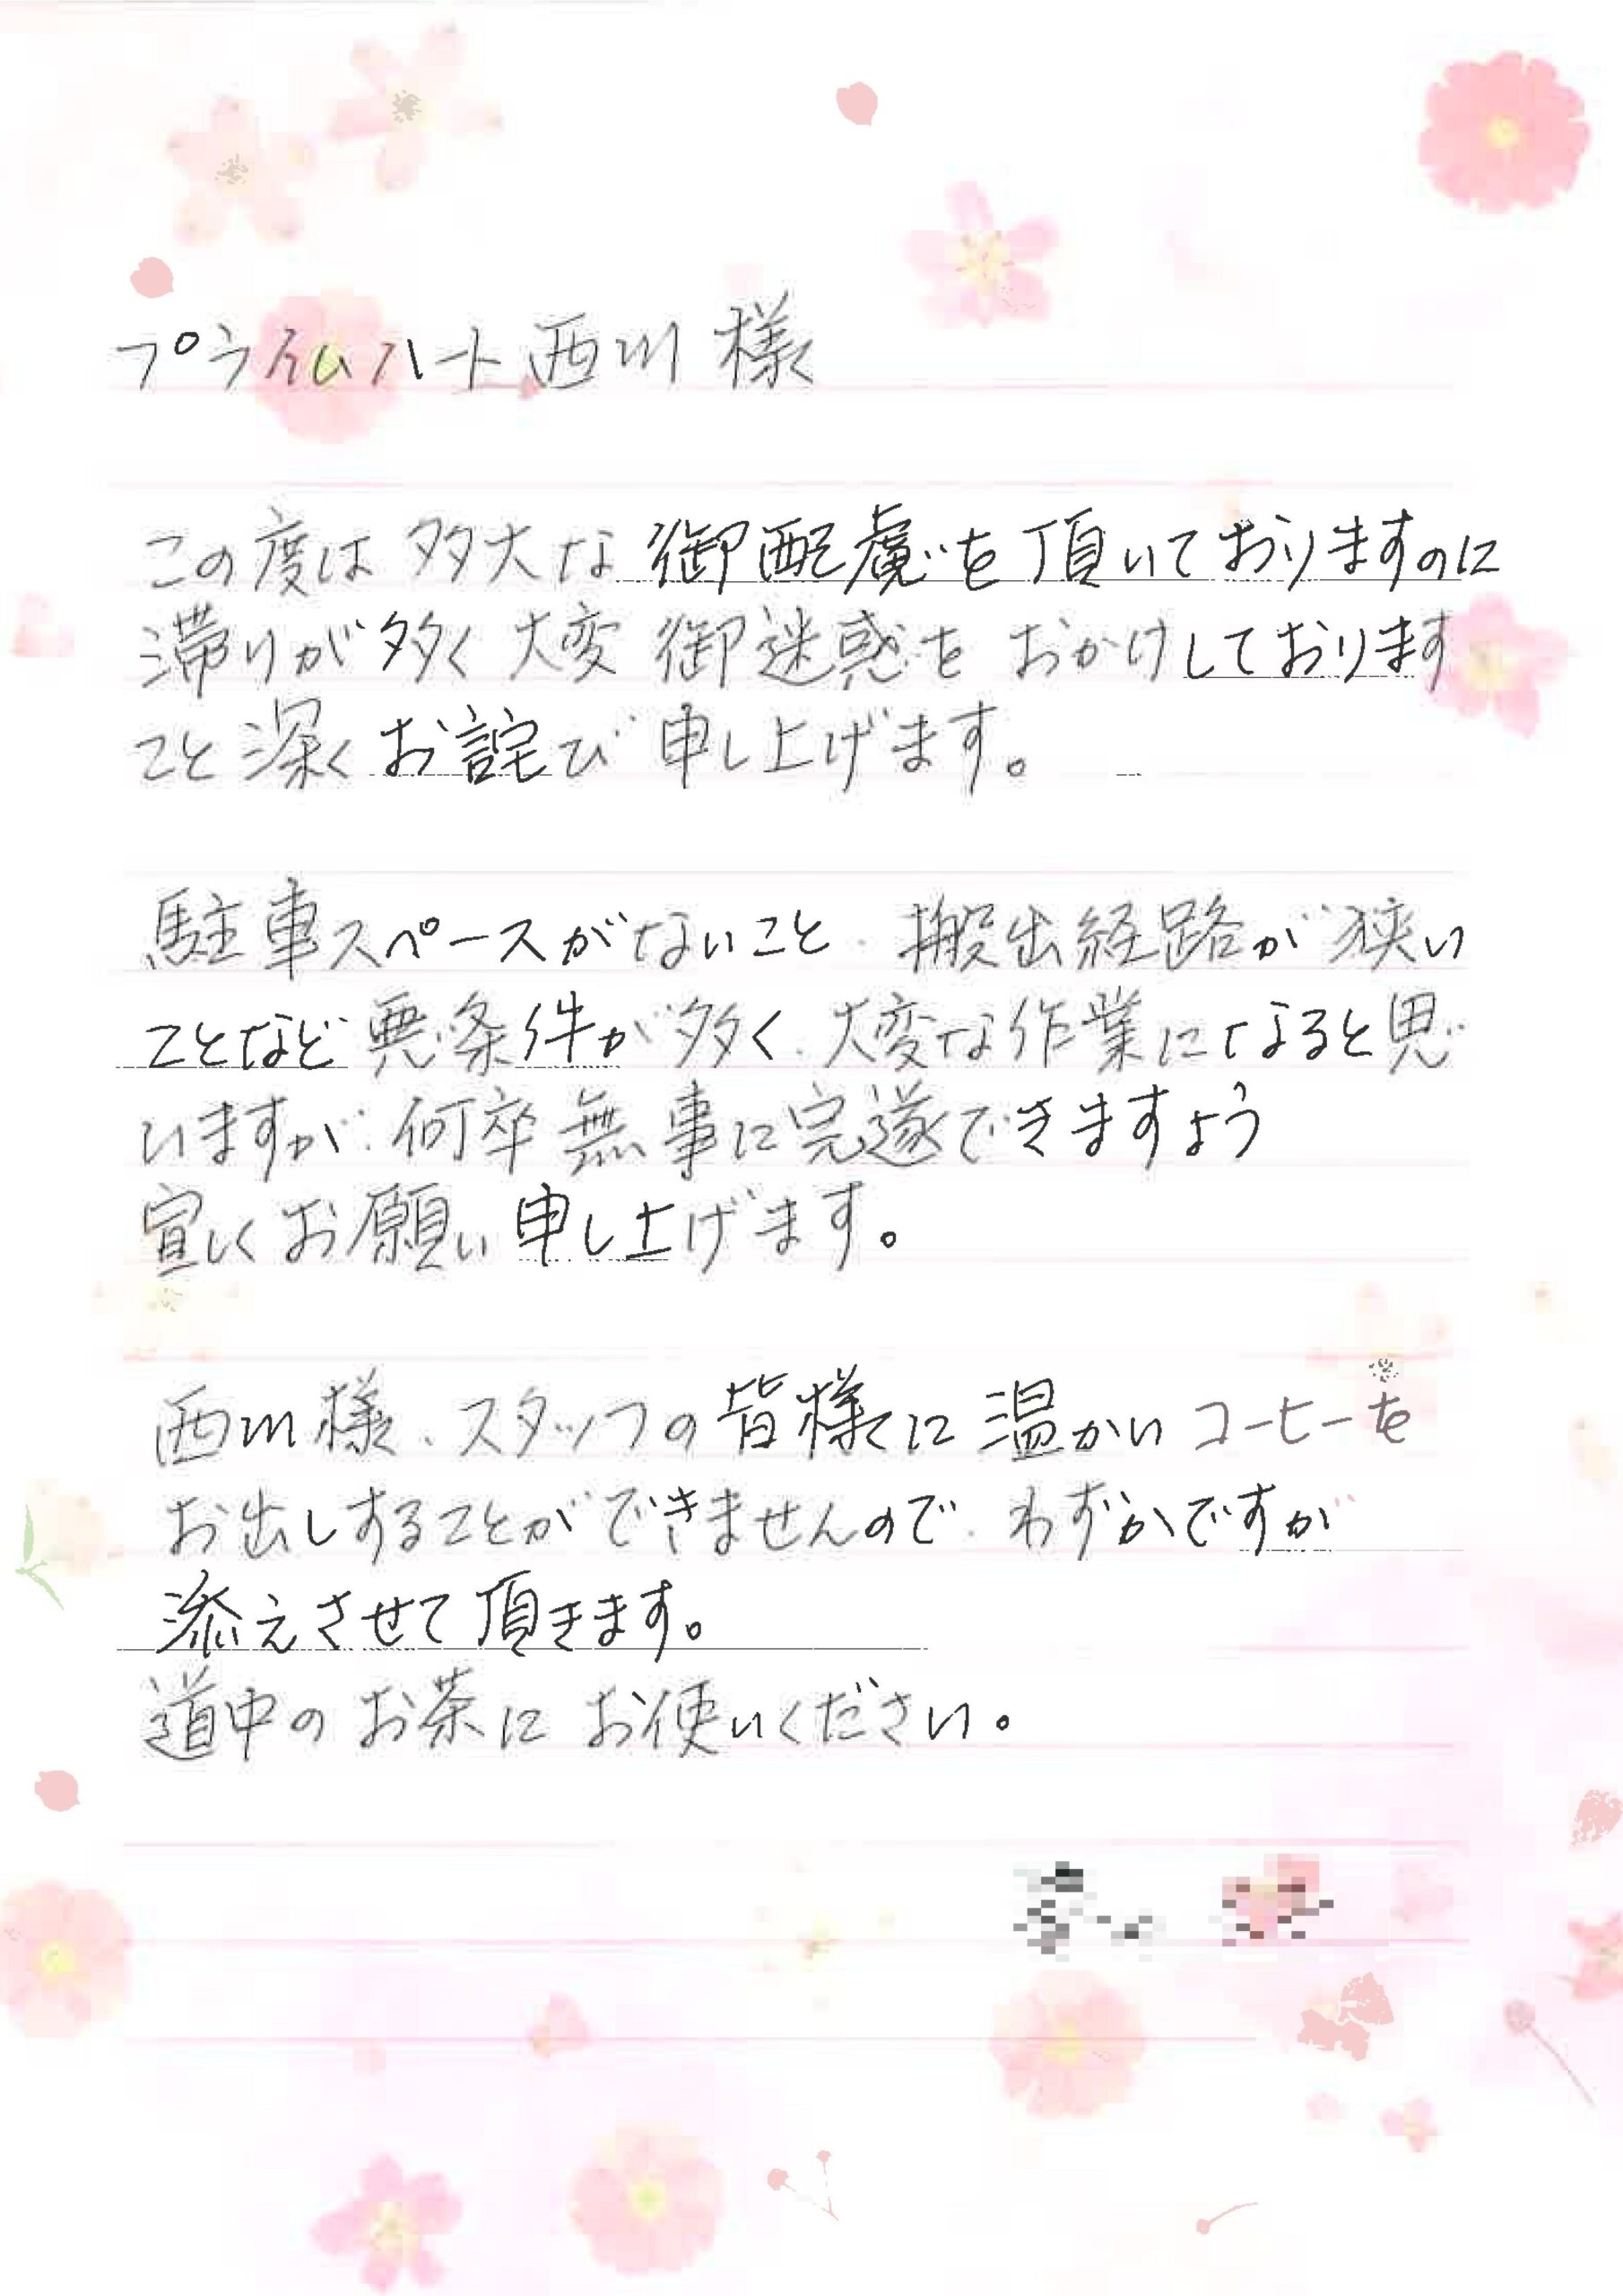 プライムハート西川様
この度は多大な御配慮を頂いておりますのに
滞りが多く大変御迷惑をおかけしております
こと深くお詫び申し上げます。
駐車スペースがないこと、搬出経路が狭い
ことなど悪条件が多く、大変な作業になると思
いますが、何卒無事に完遂できますよう
宜しくお願い申し上げます。
西川様、スタッフの皆様に温かいコーヒーを
お出しすることができませんので、わずかですが
添えさせて頂きます。
道中のお茶にお使いください。